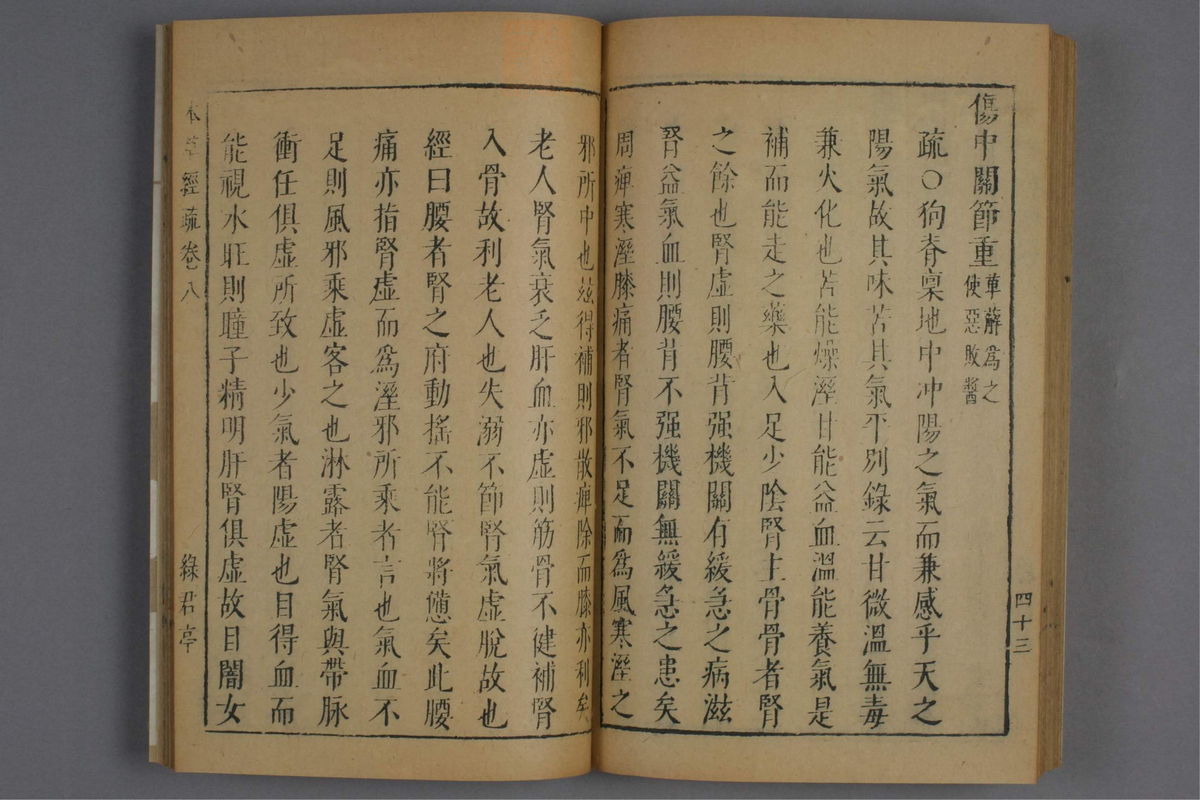 傷中關節重萆薢爲之使惡敗醬
疏○狗脊稟地中冲陽之氣而兼感乎天之
陽氣故其味苦其氣平别錄云甘微溫無毒
兼火化也苦能燥溼甘能益血溫能養氣是
補而能走之藥也入足少陰腎主骨骨者腎
之餘也腎虛則腰背强機關有緩急之病滋
腎益氣血則腰背不强機關無緩急之患矣
周痺寒溼膝痛者腎氣不足而爲風寒溼之
四十三
邪所中也兹得補則邪散痺除而膝亦利矣
老人腎氣衰乏肝血亦虛則筋骨不健補腎
入骨故利老人也失溺不節腎氣虛脫故也
經曰腰者腎之府動搖不能腎將憊矣此腰
痛亦指腎虛而爲溼邪所乘者言也氣血不
足則風邪乘虛客之也淋露者腎氣與帶脉
衝任俱虛所致也少氣者陽虛也目得血而
能視水旺則瞳子精明肝腎俱虛故目闇女
本草經疏卷八
綠君亭